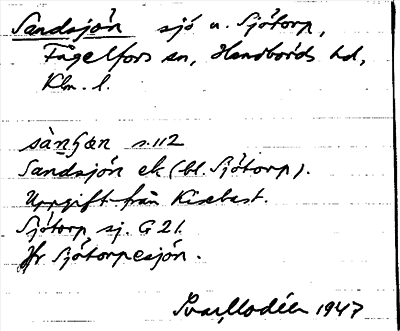 Sandsjön sjö u. Sjötorp,
Fågelfors sn, Handbörds hd,
Klm. l.
s.112
Sandsjön ek (bl. Sjötorp).
Uppgift från Kisebast.
Sjötorp sj. G 21.
Jfr Sjötorpesjön.
Ivar Modéer 1947